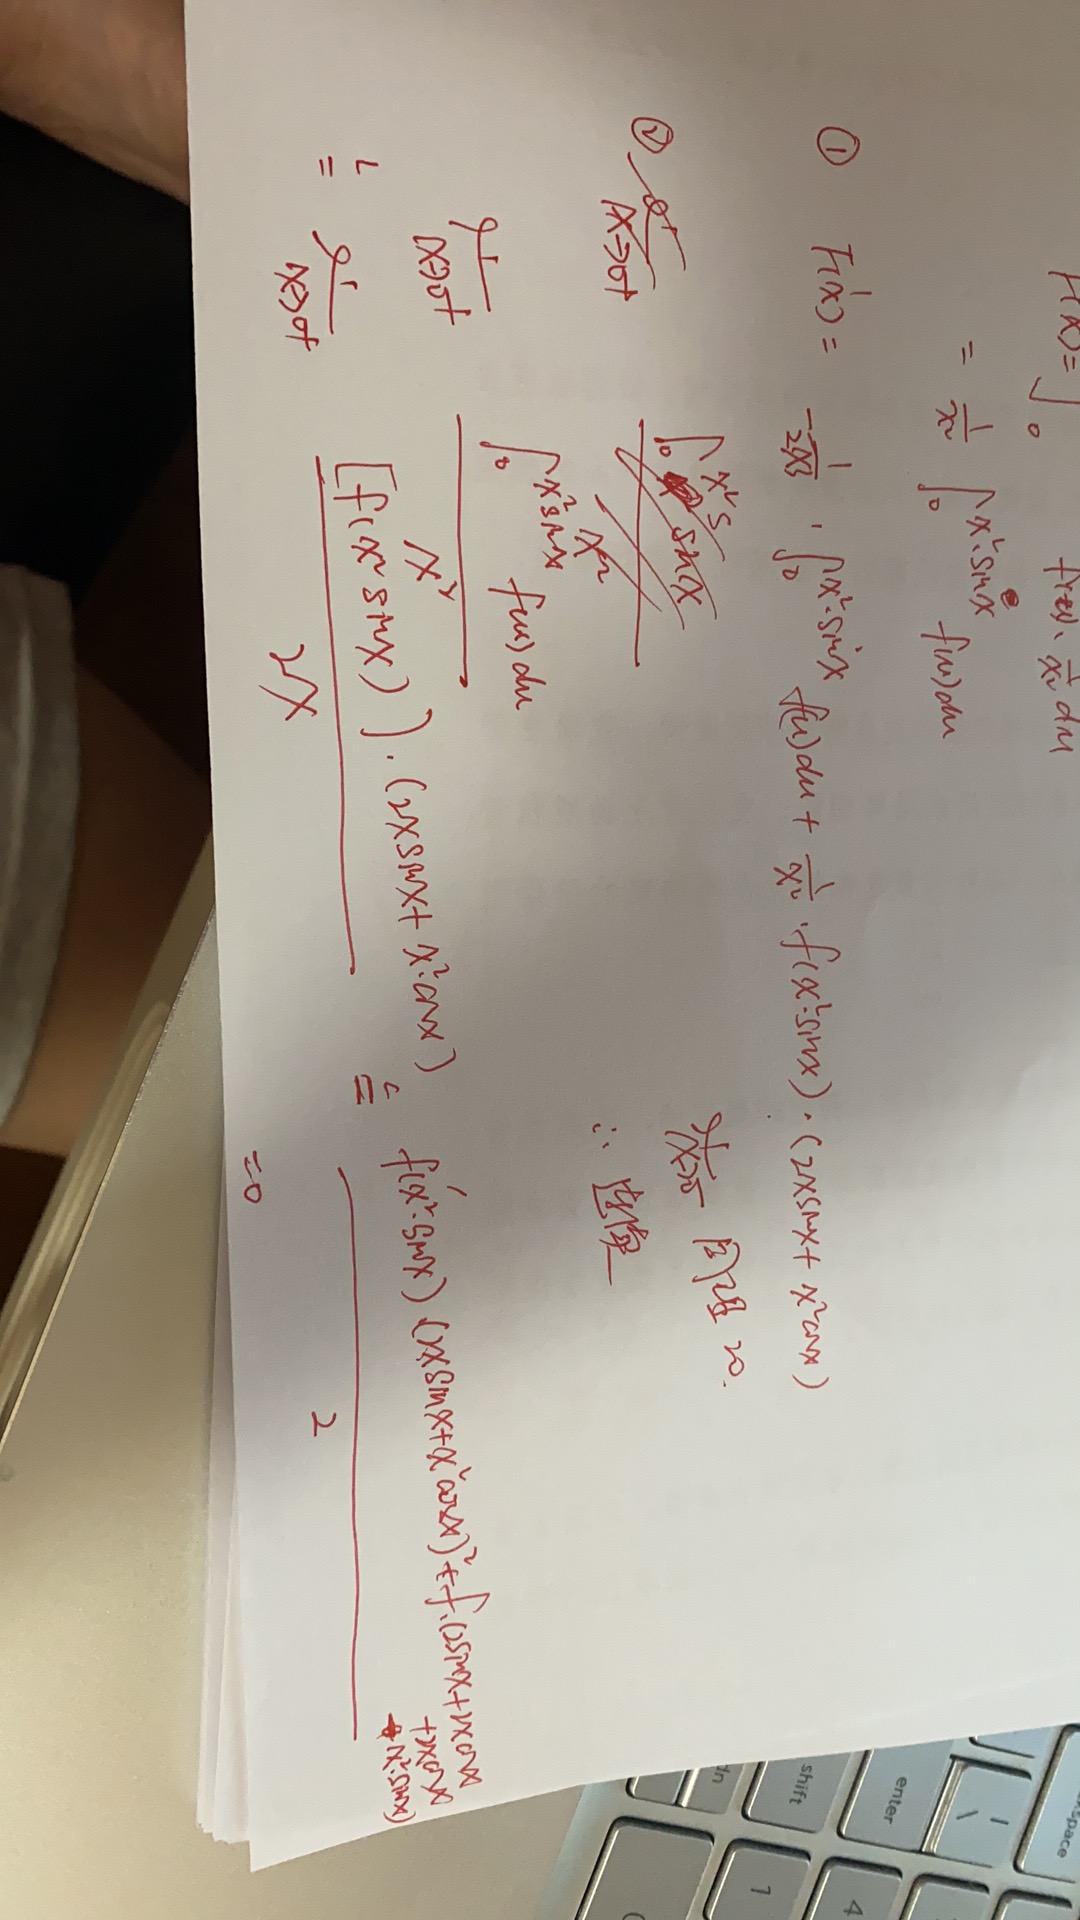 F(x) = ∫₀ f(u)·1/x² du
= 1/x² ∫₀^{x²·sinx} f(u)du
① F'(x) = -1/2x³ · ∫₀^{x²·sinx} f(u)du + 1/x² · f(x²·sinx)·(2xsinx + x²cosx)
②
lim x→0⁺ ∫₀^{x²sinx} f(u)du / x²
lim x→0⁻ 同理 =0.
∴ 连续
L= lim x→0⁺ [f(x²sinx)]·(2xsinx + x²·cosx) / 2x L= f'(x²·sinx)(2xsinx+x²cosx)²+f·(2sinx+2xcosx+2xcosx-x²·sinx) / 2
=0
space
enter
\
shift
fn
4
1